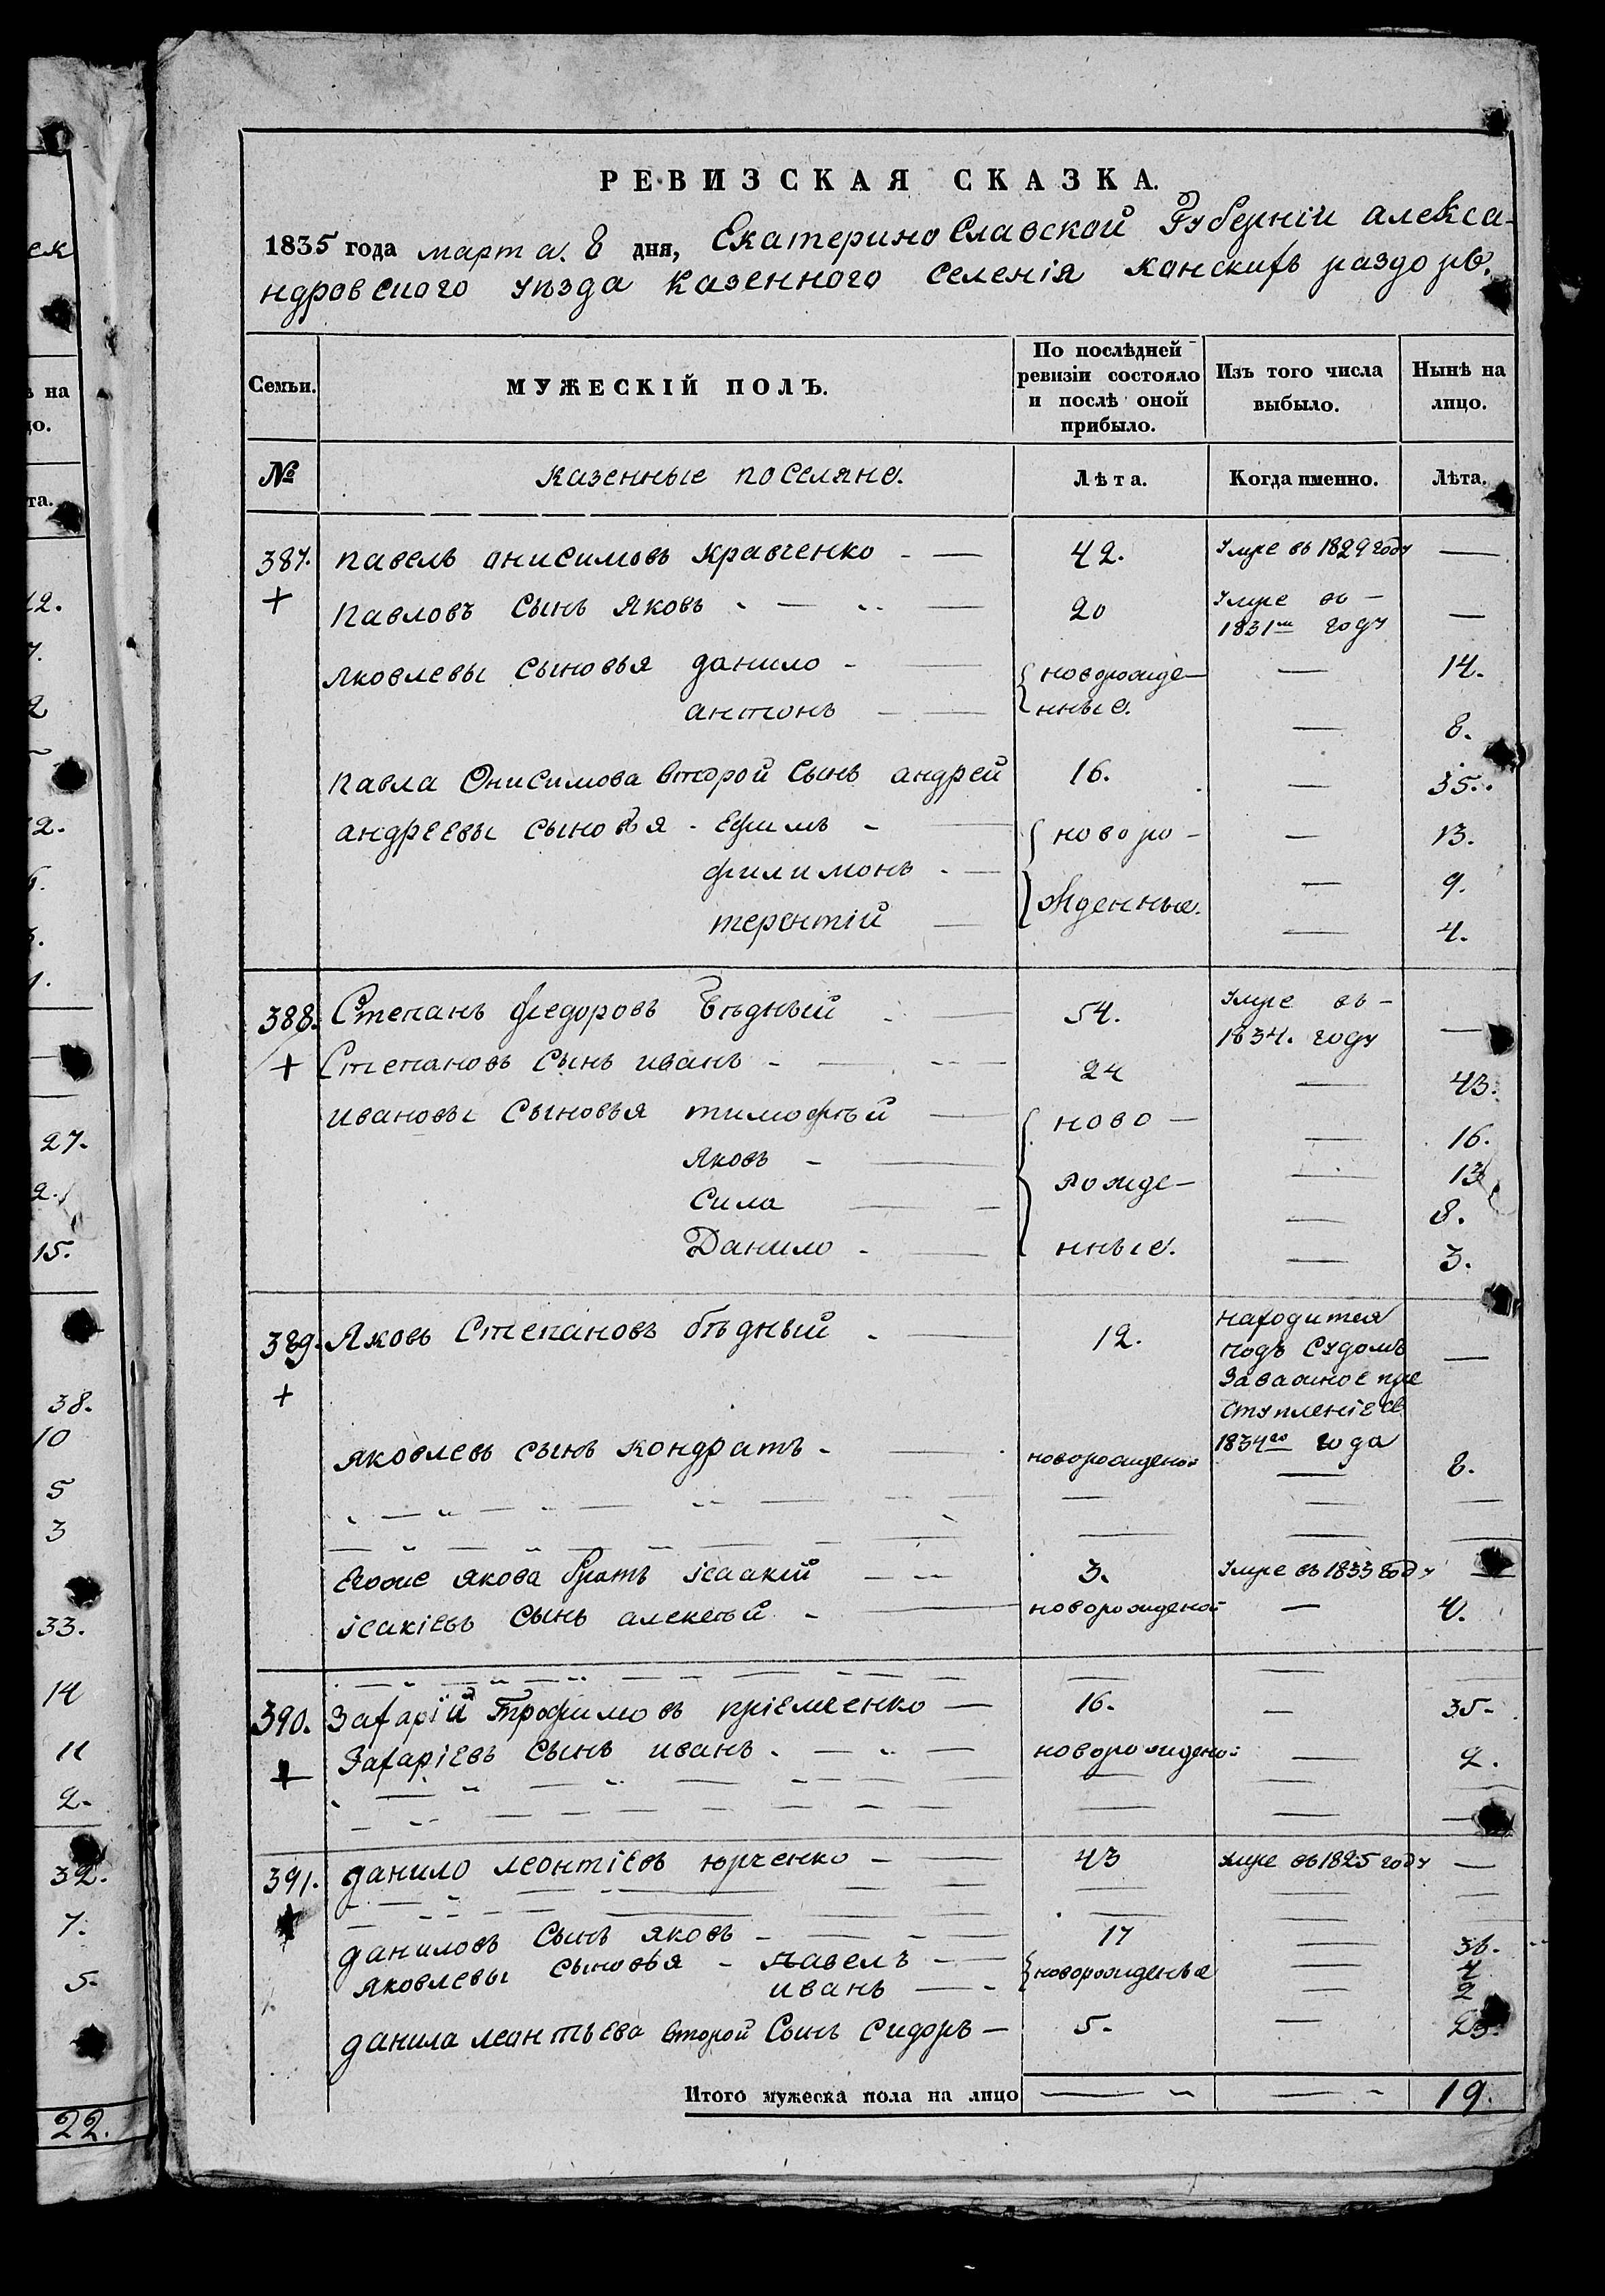 ек
ѣ на
цо.
та.
12.
7.
2
12.
27.
2.
15.
38.
10
5
3
33.
14
11
2.
32.
7.
5.
22.
РЕВИЗСКАЯ СКАЗКА.
1835 года марта 8 дня, Екатеринославской Губерніи алекса-
ндровского уѣзда казенного селенія конскихъ раздоръ.
Семьи.
МУЖЕСКІЙ ПОЛЪ.
По послѣдней ревизіи состояло и послѣ оной прибыло.
Изъ того числа выбыло.
Нынѣ на лицо.
№ казенные поселяне. Лѣта. Когда именно. Лѣта.
387. павелъ анисимовъ кравченко - — 42. Умре въ 1829 году —
+ павловъ сынъ яковъ 20 Умре въ - 1831м году —
яковлевы сыновья данило - — { новорожде- — 14.
антонъ — — нные. — 8.
павла Онисимова второй сынъ андрей 16. — 35.
андреевы сыновья - ефимъ - — { новоро- — 13.
филимонъ - — — 9.
терентій — жденные. — 4.
388. Степанъ федоровъ бѣдный — 54. Умре въ - 1834. году —
+ Степановъ сынъ иванъ - — 24 — 43.
ивановы сыновья тимофѣй — { ново- — 16.
яковъ - — — 13
сила — рожде- — 8.
Данило - — нные. — 3.
389. Яковъ Степановъ бѣдный - — 12. находится
подъ судомъ —
+ заважное пре
ступленіе съ
1834го года
яковлевъ сынъ кондратъ - — новорожденой — 8.
Егоже якова братъ ісаакій — 3. Умре въ 1833 году —
ісакіевъ сынъ алексѣй - — новорожденой — 4.
390. Захарій Трофимовъ пріеменко — 16. — 35.
+ Захаріевъ сынъ иванъ - — новорожденой — 2.
391. данило леонтіевъ юрченко - — 43 умре въ 1825 году —
даниловъ сынъ яковъ - — 17 — 36.
яковлевы сыновья - павелъ - — { новорожденые — 4
иванъ — - — 2
данила леонтьева второй сынъ сидоръ — 5. — 23.
Итого мужеска пола на лицо — — 19.